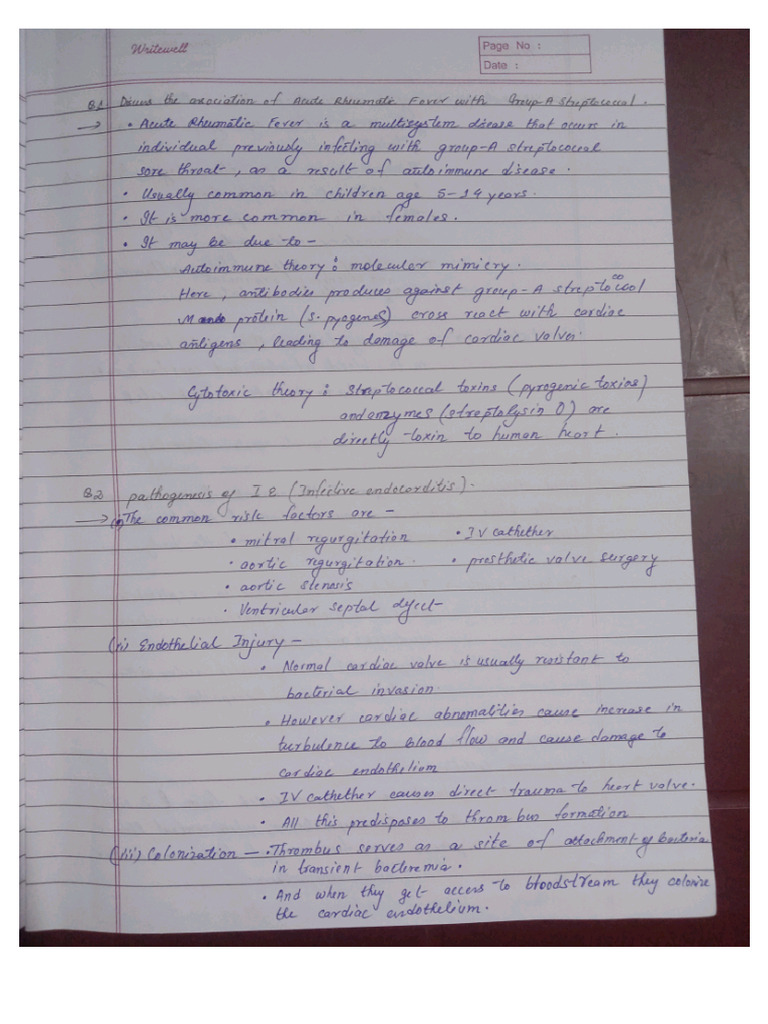 Writewell
Page No :
Date :
Q.1 Discuss the association of Acute Rheumatic Fever with Group-A Streptococcal.
→ • Acute Rheumatic Fever is a multisystem disease that occurs in
individual previously infecting with group-A streptococcal
sore throat, as a result of autoimmune disease.
• Usually common in children age 5-14 years.
• It is more common in females.
• It may be due to -
Autoimmune theory : molecular mimicry.
Here, antibodies produces against group-A streptococcal
M protein (S. pyogenes) cross react with cardiac
antigens, leading to damage of cardiac valves.
Cytotoxic theory : Streptococcal toxins (pyrogenic toxins)
and enzymes (streptolysin O) are
directly toxin to human heart.
Q.2 pathogenesis of I.E. (Infective endocarditis).
→ (i) The common risk factors are -
• mitral regurgitation • IV cathether
• aortic regurgitation. • prosthetic valve surgery
• aortic stenosis
• Ventricular septal defect-
(ii) Endothelial Injury -
• Normal cardiac valve is usually resistant to
bacterial invasion.
• However cardiac abnomalities cause increase in
turbulence to blood flow and cause damage to
cardiac endothelium
• IV cathether causes direct trauma to heart valve.
• All this predisposes to thrombus formation
(iii) Colonization - • Thrombus serves as a site of attachment of bacteria
in transient bacteremia.
• And when they get access to bloodstream they colonize
the cardiac endothelium.